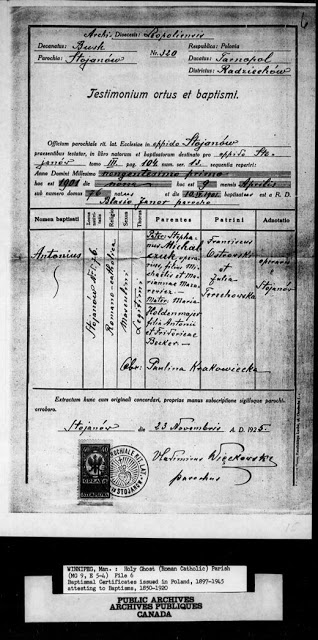 6
Archi Dioecesis Leopoliensis
Decanatus: Busk
Respublica: Polonia
Nr. 320
Ducatus: Tarnopol
Parochia: Stojanów
Districtus: Radziechów
Testimonium ortus et baptismi.
Officium parochiale rit. lat. Ecclesiae in oppido Stojanów
praesentibus testatur, in libro natorum et baptisatorum destinato pro oppido Sto-
janów tom III. pag. 104. num. ser. 12. sequentia reperiri:
Anno Domini Millesimo nongentesimo primo
hoc est 1901 die nona hoc est 9 mensis Aprilis
sub numero domus 76 natus et die baptisatus est a R. D.
Blasio Janor parocho
Nomen baptisati
Religio
Sexus
Thorus
Parentes
Patrini
Adnotatio
Antonius
Stojanów Nr. 76.
Romano catholica
Masculini
Legitimi
Petrus Stepha-
nus Michal
czuk, opera-
rius, filius Mi-
chaelis et Ma-
riannae Maza-
rewicz
Mater: Maria
Holdenmajer
filia Antonii
et Fridericae
Becker.
Franciscus
Ostrowski
et
Julia
Terechowska
operarius
Stojanów
Obs: Paulina Krakowiecka
Extractum hunc cum originali concordari, propriae manus subscriptione sigilloque parochiali
corroboro.
Stojanów die 23 Novembris A. D. 1925.
Vladimirus Więckowski
parochus
WINNIPEG, Man. : Holy Ghost (Roman Catholic) Parish
(MG 9, E 5-4) File 6
Baptismal Certificates issued in Poland, 1897-1945
attesting to Baptisms, 1850-1920
PUBLIC ARCHIVES
ARCHIVES PUBLIQUES
CANADA